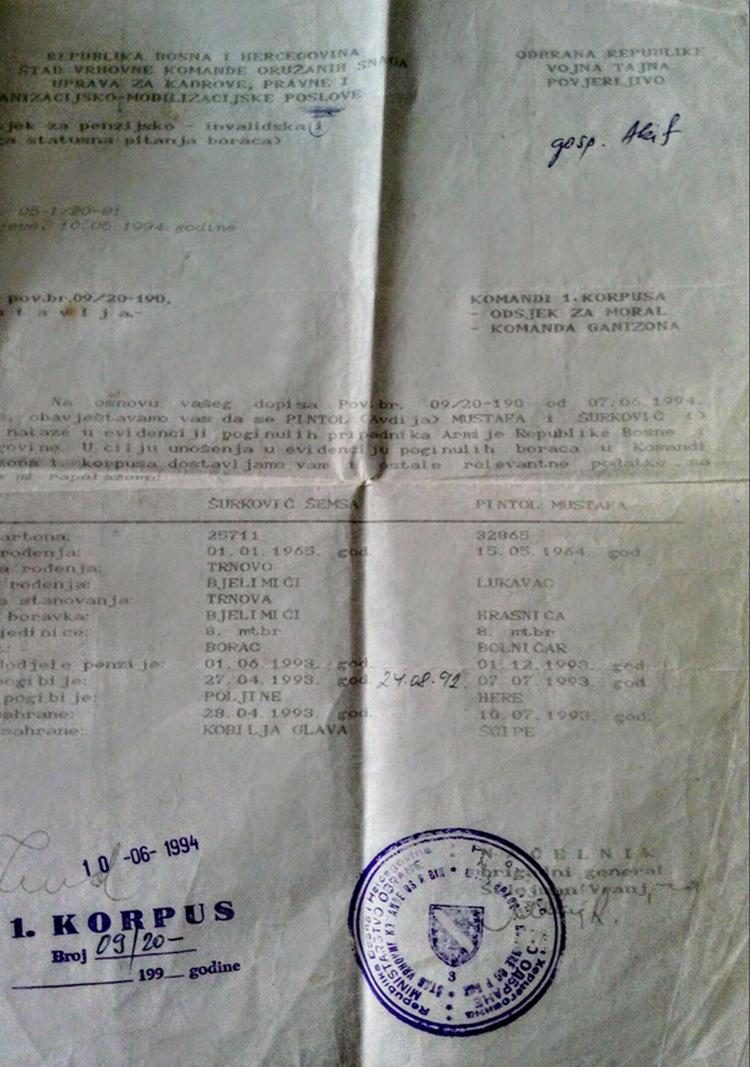 REPUBLIKA BOSNA I HERCEGOVINA
ŠTAB VRHOVNE KOMANDE ORUŽANIH SNAGA
UPRAVA ZA KADROVE, PRAVNE I
ANIZACIJSKO-MOBILIZACIJSKE POSLOVE
jek za penzijsko - invalidska i
ga statusna pitanja boraca)
ODBRANA REPUBLIKE
VOJNA TAJNA
POVJERLJIVO
gosp. Akif
05-1/20-81
jevo, 10.06.1994.godine
pov.br.09/20-190,
t a v l j a.-
KOMANDI 1.KORPUSA
- ODSJEK ZA MORAL
- KOMANDA GANIZONA
Na osnovu vašeg dopisa Pov.br. 09/20-190 od 07.06.1994.
obavještavamo vas da se PINTOL (Avdija) MUSTAFA i ŠURKOVIĆ ()
nalaze u evidenciji poginulih pripadnika Armije Republike Bosne
govine. U cilju unošenja u evidenciju poginulih boraca u Komandi
zona 1. korpusa dostavljamo vam i ostale relevantne podatke sa
ŠURKOVIĆ ŠEMSA PINTOL MUSTAFA
artona: 25711 32865
rođenja: 01.01.1965. god. 15.05.1964. god.
a rođenja: TRNOVO
rođenja: BJELIMIĆI LUKAVAC
a stanovanja: TRNOVA
boravka: BJELIMIĆI HRASNICA
jedinice: 8. mtbr 8. mtbr
: BORAC BOLNIČAR
dodjele penzije: 01.06.1993. god. 01.12.1993. god
pogibije: 27.04.1993. god. 24.08.92. 07.07.1993. god.
pogibije: POLJINE HERE
sahrane: 28.04.1993. god. 10.07.1993. god.
sahrane: KOBILJA GLAVA ŠĆIPE
10 -06- 1994
1. KORPUS
Broj 09/20-
199__ godine
NAČELNIK
brigadni general
Sulejman Vranj
Republika Bosna i Hercegovina
MINISTARSTVO ODBRANE
3